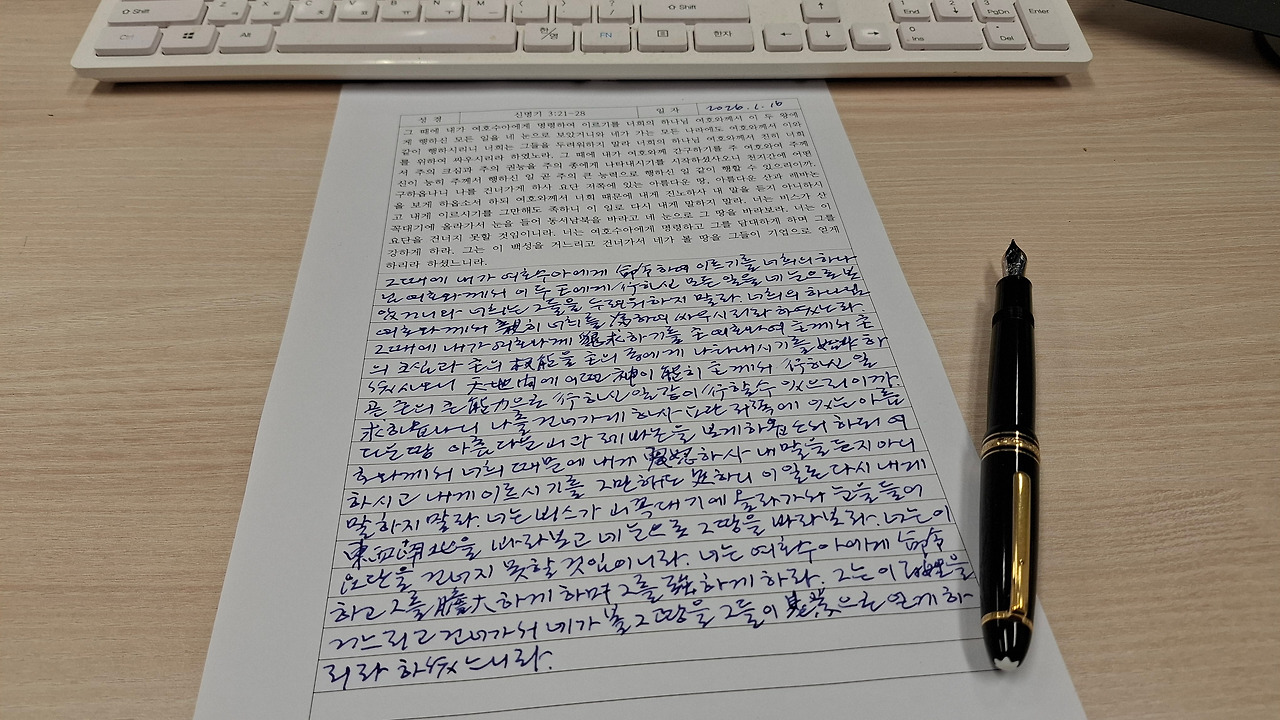 성 경 신명기 3:21-28 일 자 2026. 1. 16
그 때에 내가 여호수아에게 명령하여 이르기를 너희의 하나님 여호와께서 이 두 왕에
게 행하신 모든 일을 네 눈으로 보았거니와 네가 가는 모든 나라에도 여호와께서 이와
같이 행하시리니 너희는 그들을 두려워하지 말라 너희의 하나님 여호와께서 친히 너희
를 위하여 싸우시리라 하였노라. 그 때에 내가 여호와께 간구하기를 주 여호와여 주께
서 주의 크심과 주의 권능을 주의 종에게 나타내시기를 시작하셨사오니 천지간에 어떤
신이 능히 주께서 행하신 일 곧 주의 큰 능력으로 행하신 일 같이 행할 수 있으리이까.
구하옵나니 나를 건너가게 하사 요단 저쪽에 있는 아름다운 땅, 아름다운 산과 레바논
을 보게 하옵소서 하되 여호와께서 너희 때문에 내게 진노하사 내 말을 듣지 아니하시
고 내게 이르시기를 그만해도 족하니 이 일로 다시 내게 말하지 말라. 너는 비스가 산
꼭대기에 올라가서 눈을 들어 동서남북을 바라고 네 눈으로 그 땅을 바라보라. 너는 이
요단을 건너지 못할 것임이니라. 너는 여호수아에게 명령하고 그를 담대하게 하며 그를
강하게 하라. 그는 이 백성을 거느리고 건너가서 네가 볼 땅을 그들이 기업으로 얻게
하리라 하셨느니라.
그때에 내가 여호수아에게 命令하며 이르기를 너희의 하나
님 여호와께서 이 두 王에게 行하신 모든 일을 네 눈으로 보
았거니와 너희는 그들을 두려워하지 말라 너희의 하나님
여호와께서 親히 너희를 爲하여 싸우시리라 하였노라.
그때에 내가 여호와께 懇求하기를 主 여호와여 主께서 主
의 크심과 主의 權能을 主의 종에게 나타내시기를 始作하
셨사오니 天地間에 어떤 神이 能히 主께서 行하신 일
곧 主의 큰 能力으로 行하신 일같이 行할수 있으리이까.
求하옵나니 나를 건너가게 하사 요단 저쪽에 있는 아름
다운 땅 아름다운 山과 레바논을 보게 하옵소서 하되 여
호와께서 너희 때문에 내게 震怒하사 내 말을 듣지 아니
하시고 내게 이르시기를 그만해도 足하니 이 일로 다시 내게
말하지 말라. 너는 비스가 山 꼭대기에 올라가서 눈을 들어
東西南北을 바라보고 네 눈으로 그 땅을 바라보라. 너는 이
요단을 건너지 못할 것임이니라. 너는 여호수아에게 命令
하고 그를 膽大하게 하며 그를 强하게 하라. 그는 이 百姓을
거느리고 건너가서 네가 볼 그 땅을 그들이 基業으로 얻게 하
리라 하셨느니라.